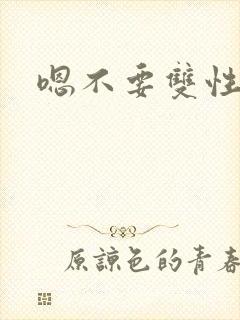 嗯不要雙性
原諒色的青春